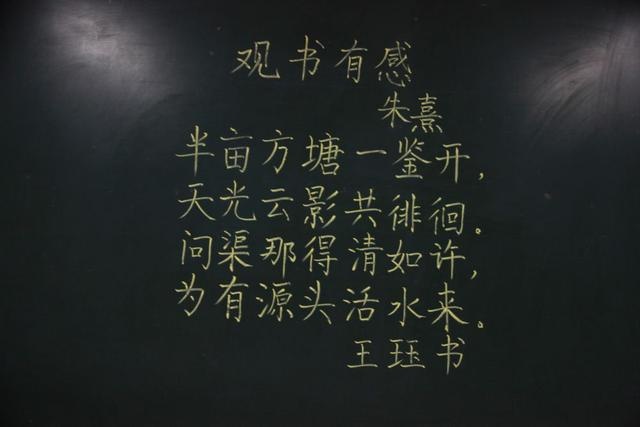 观书有感
朱熹
半亩方塘一鉴开,
天光云影共徘徊。
问渠那得清如许,
为有源头活水来。
王珏书